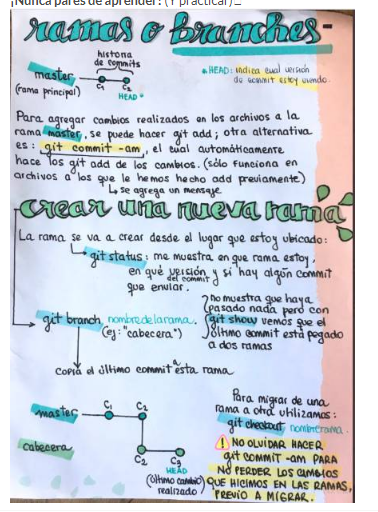 ¡Nunca pares de aprender! (Y practicar)
ramas o branches
historia
de commits
master
(rama principal)
C1 C2
HEAD
* HEAD: indica cual versión
de commit estoy viendo.
Para agregar cambios realizados en los archivos a la
rama master, se puede hacer git add; otra alternativa
es: git commit -am, el cual automáticamente
hace los git add de los cambios. (sólo funciona en
archivos a los que le hemos hecho add previamente)
↳ se agrega un mensaje
crear una nueva rama
La rama se va a crear desde el lugar que estoy ubicado:
git status: me muestra en que rama estoy,
en qué versión y si hay algún commit
del commit
que enviar.
git branch nombredelarama.
(ej: "cabecera")
no muestra que haya
pasado nada pero con
git show vemos que el
último commit está pegado
a dos ramas
copia el último commit a esta rama
master
C1 C2
cabecera
C2 C3
HEAD
(último cambio)
realizado
Para migrar de una
rama a otra utilizamos:
git checkout nombrerama.
! NO OLVIDAR HACER
git COMMIT -am PARA
NO PERDER LOS CAMBIOS
QUE HICIMOS EN LAS RAMAS,
PREVIO A MIGRAR.